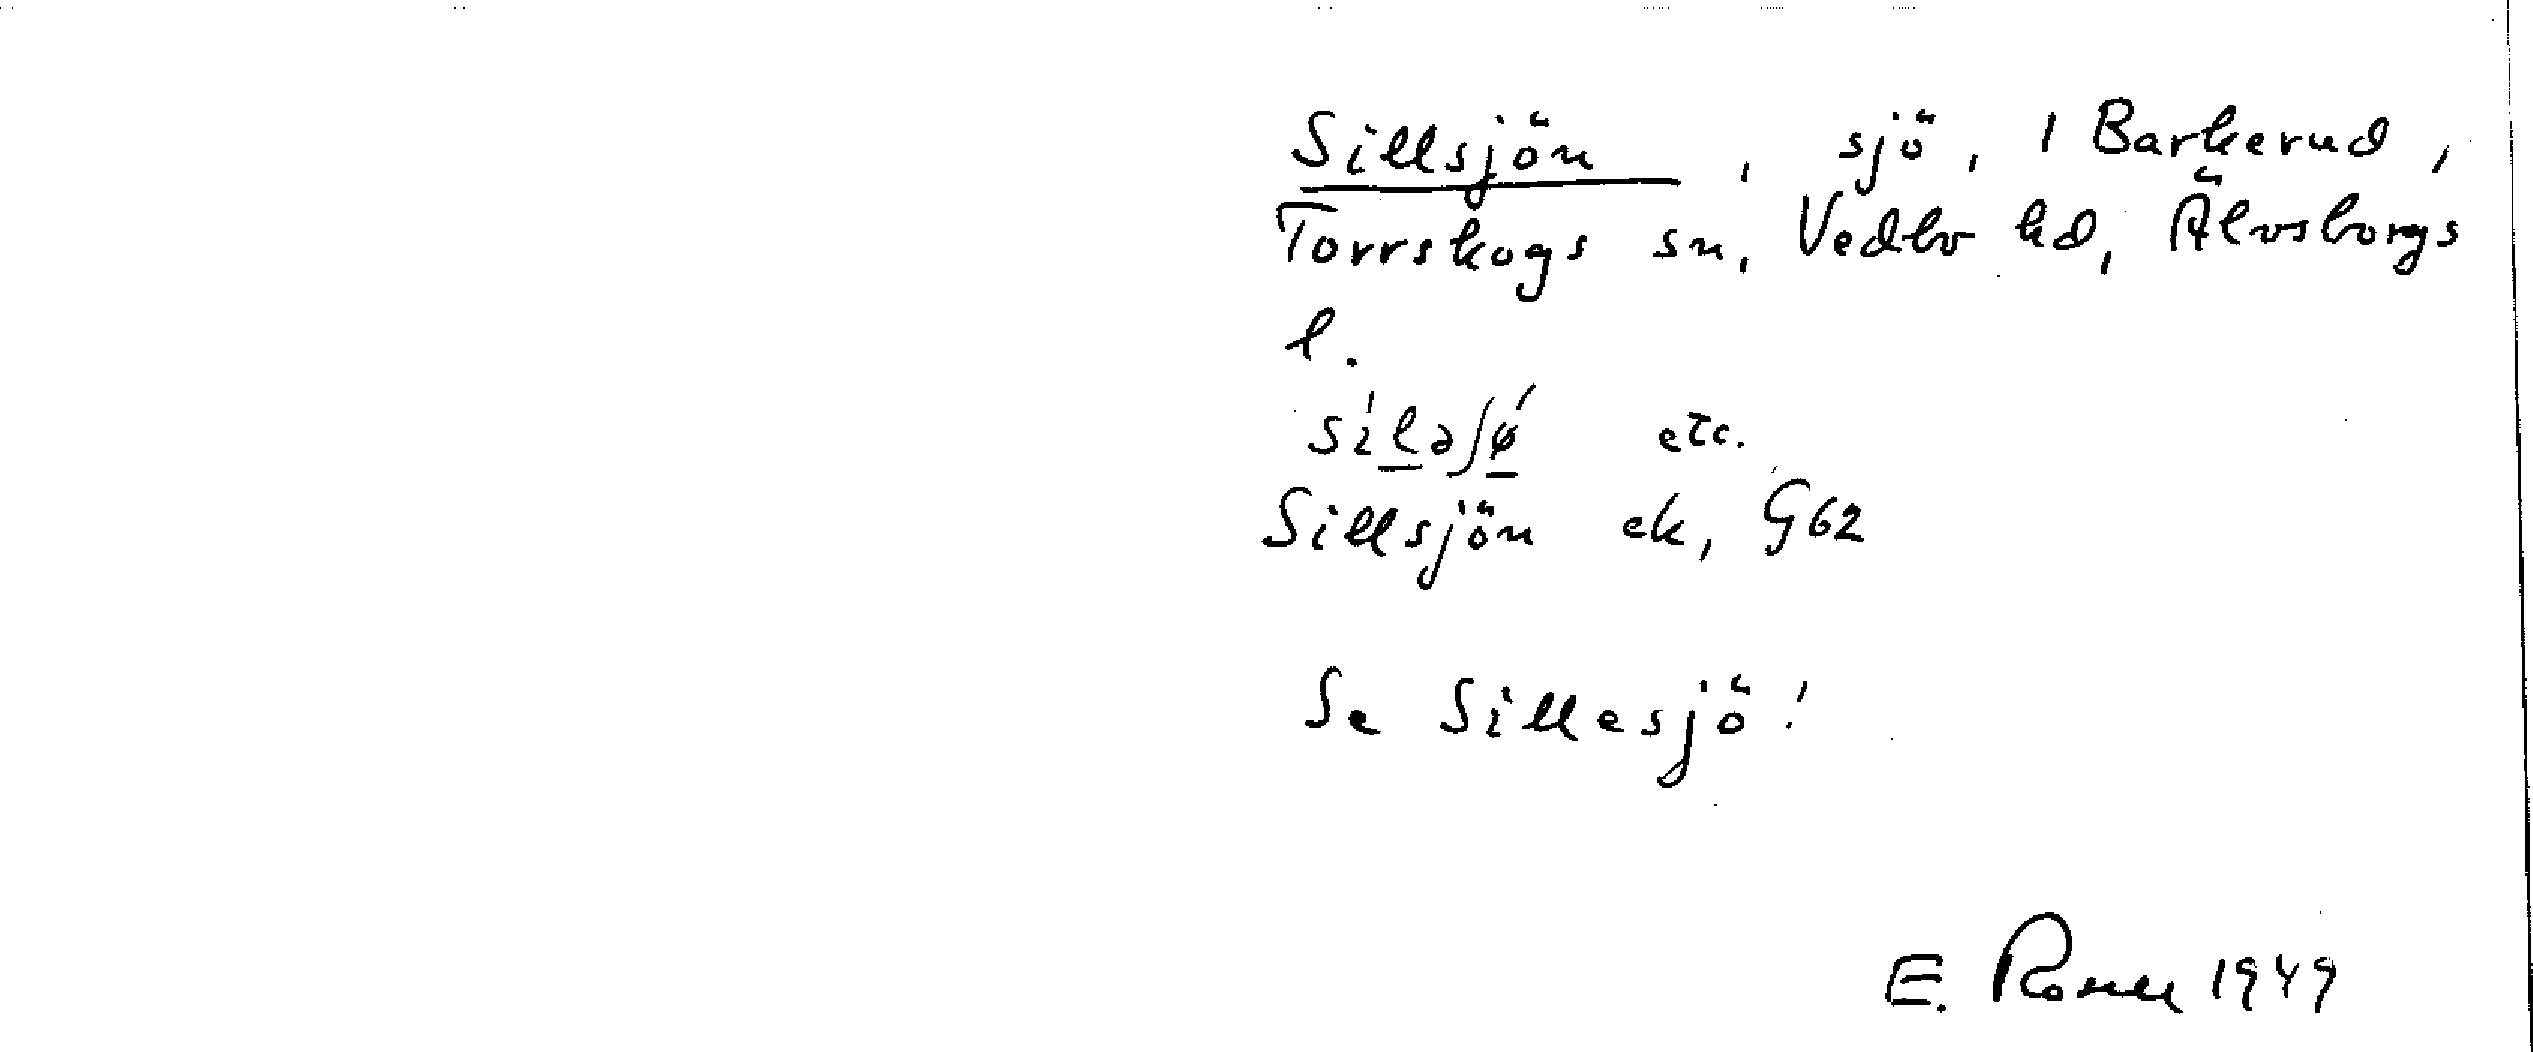 Sillsjön, sjö, i Barkerud,
Torrskogs sn, Vedbo hd, Älvsborgs
l.
etc.
Sillsjön ek, G62
Se Sillesjö!
E. 1949